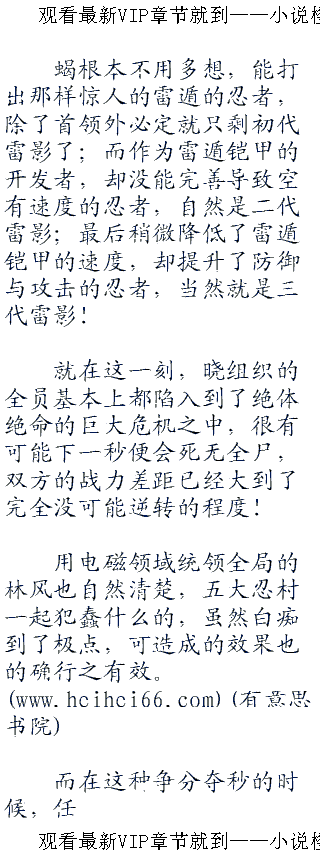 观看最新VIP章节就到——小说
蝎根本不用多想，能打
出那样惊人的雷遁的忍者，
除了首领外必定就只剩初代
雷影了；而作为雷遁铠甲的
开发者，却没能完善导致空
有速度的忍者，自然是二代
雷影；最后稍微降低了雷遁
铠甲的速度，却提升了防御
与攻击的忍者，当然就是三
代雷影！
就在这一刻，晓组织的
全员基本上都陷入到了绝体
绝命的巨大危机之中，很有
可能下一秒便会死无全尸，
双方的战力差距已经大到了
完全没可能逆转的程度！
用电磁领域统领全局的
林风也自然清楚，五大忍村
一起犯蠢什么的，虽然白痴
到了极点，可造成的效果也
的确行之有效。
(www.hcihci66.com)(有意思
书院)
而在这种争分夺秒的时
候，任
观看最新VIP章节就到——小说